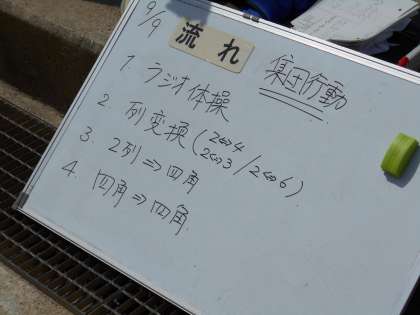 9/9
流れ
集団行動
1. ラジオ体操
2. 列変換(2⇔4/2⇔6)
2⇔3
3. 2列⇒四角
4. 四角⇒四角